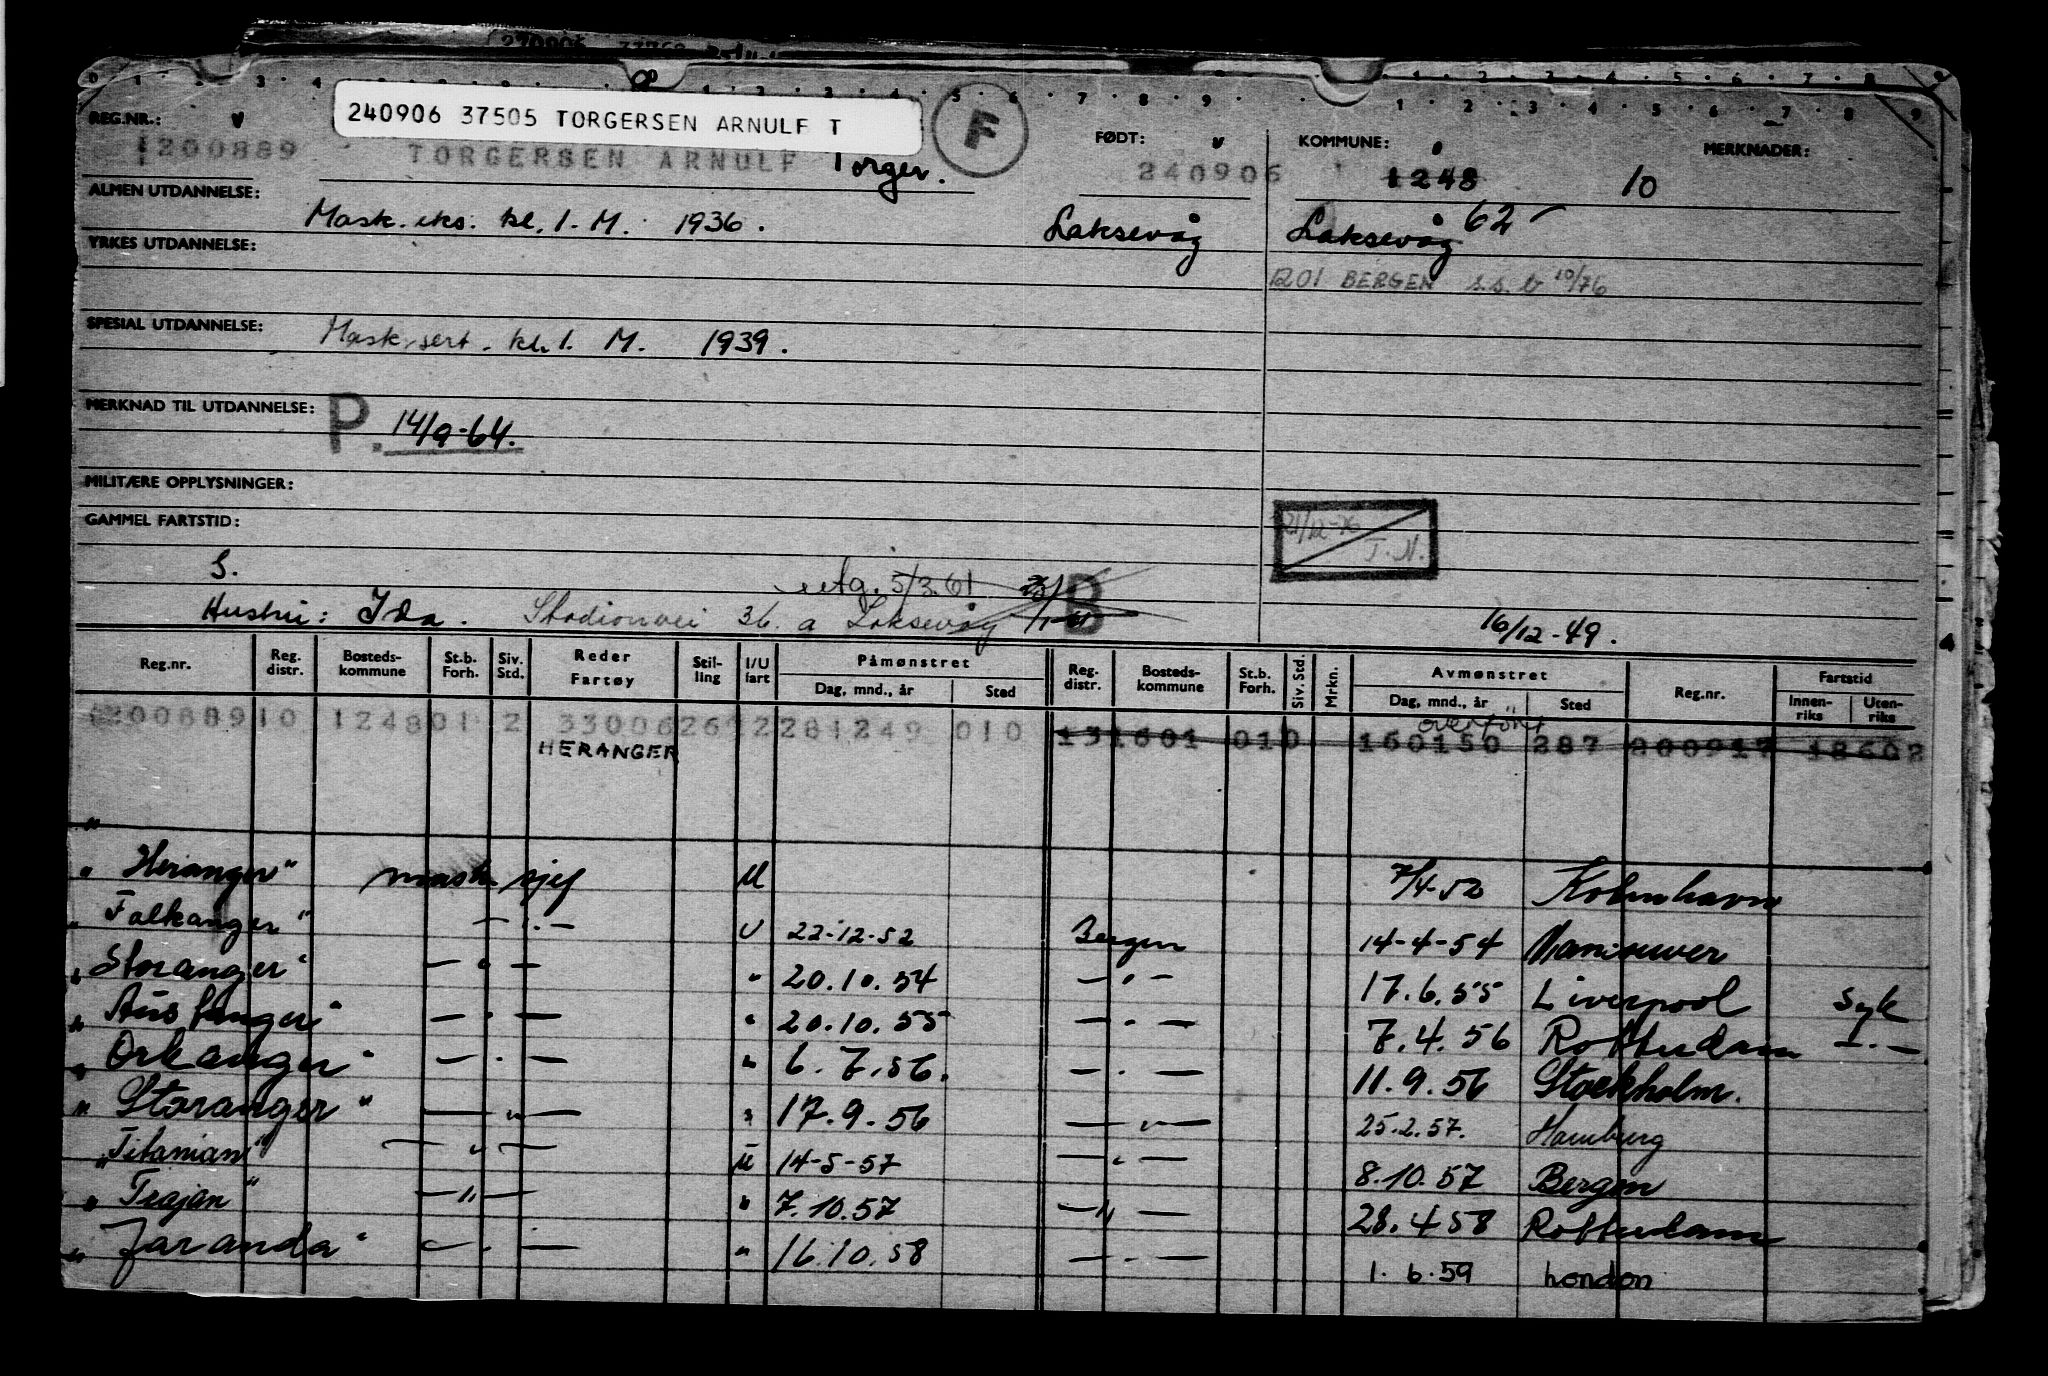 240906 37505 TORGERSEN ARNULF T
F
REG.NR.: FØDT: KOMMUNE: MERKNADER:
1200889 TORGERSEN ARNULF Torger. 240906 1248 10
ALMEN UTDANNELSE: Mask. eks. kl. 1. M. 1936. Laksevåg Laksevåg 62
YRKES UTDANNELSE: 1201 BERGEN s.s.b 10/76
SPESIAL UTDANNELSE: Mask. sert. kl. 1. M. 1939.
MERKNAD TIL UTDANNELSE: P. 14/9-64.
MILITÆRE OPPLYSNINGER:
GAMMEL FARTSTID: 21/12-76 T.N.
S. 5/3.61 B
Hustru: Ida. Stadionvei 36. a Laksevåg 16/12-49.
Reg.nr. Reg. distr. Bosteds-kommune St.b. Forh. Siv. Std. Reder Fartøy Stil-ling I/U fart Påmønstret Dag, mnd., år Sted Reg. distr. Bosteds-kommune St.b. Forh. Siv. Std. Mrkn. Avmønstret Dag, mnd., år Sted Reg.nr. Fartstid Innen-riks Uten-riks
overført
1200889 10 1248 01 2 3300626 2 2 281249 010 131601 010 160150 287 200917 18602
HERANGER
"
" Heranger" mask sjef U 7/4-52 København
" Falkanger" — " — U 22-12-52 Bergen 14-4-54 Vancouver
" Storanger" — " — " 20.10.54 — " — 17.6.55 Liverpool Syk
" Austanger" — " — " 20.10.55 — " — 7.4.56 Rotterdam — " —
" Orkanger" — " — " 6.7.56. — " — 11.9.56 Stockholm.
" Storanger" — " — " 17.9.56 — " — 25.2.57. Hamburg
" Titanian" — " — U 14-5-57 — " — 8.10.57 Bergen
" Trajan" — " — " 7.10.57 — " — 28.4 58 Rotterdam
" Jaranda" — " — " 16.10.58 — " — 1.6.59 London